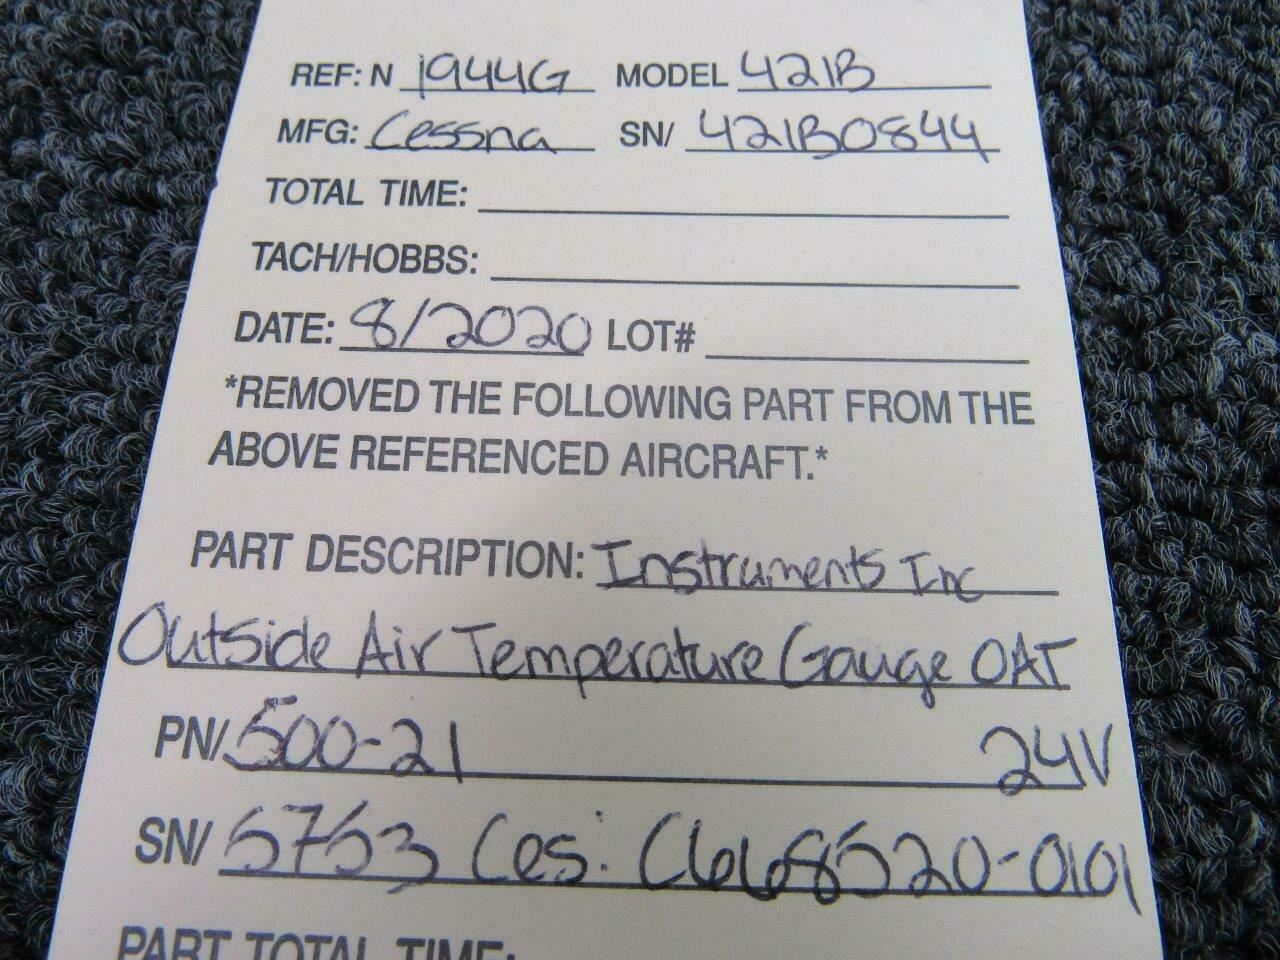 REF: N 1944G MODEL 421B
MFG: Cessna SN/ 421B0844
TOTAL TIME:
TACH/HOBBS:
DATE: 8/2020 LOT#
*REMOVED THE FOLLOWING PART FROM THE
ABOVE REFERENCED AIRCRAFT.*
PART DESCRIPTION: Instruments Inc
Outside Air Temperature Gauge OAT
PN/ 500-21 24V
SN/ 5753 Ces: C668520-0101
PART TOTAL TIME: